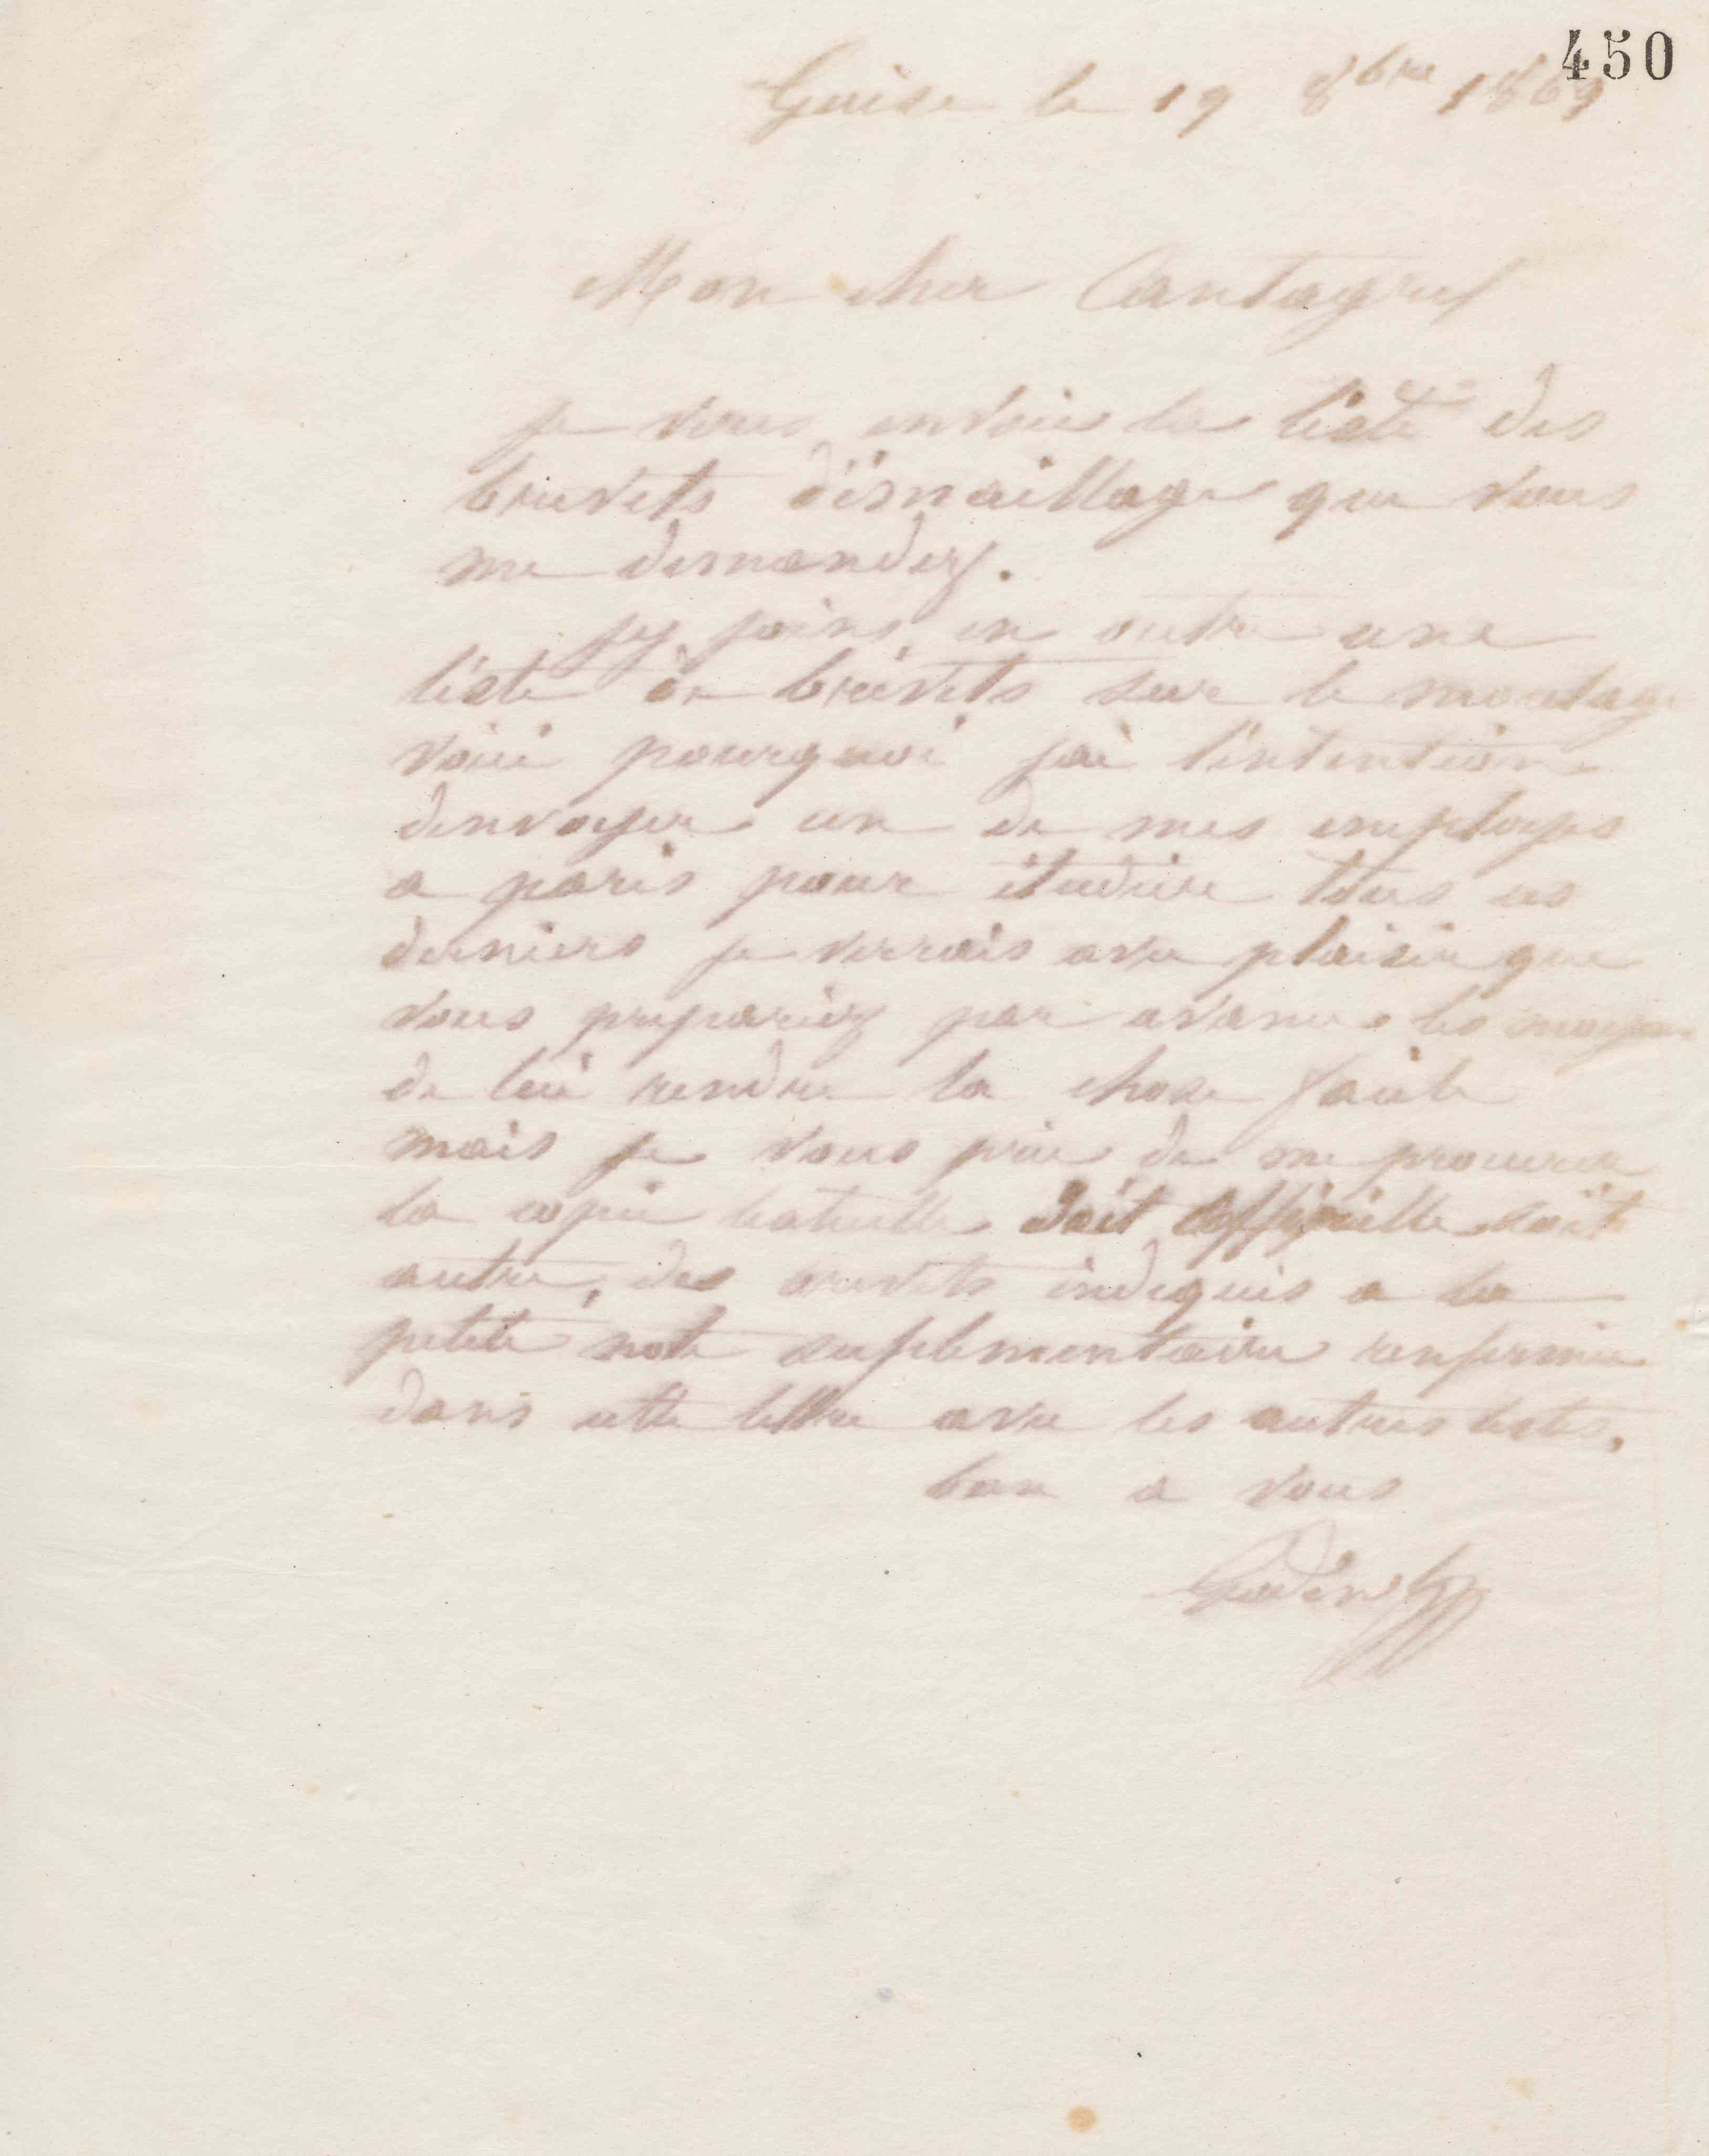 450
Guise le 19 8bre 1869
Mon cher Cantagrel
je vous envoie la liste des
brevets d'émaillage que vous
me demandez.
j'y joins en outre une
liste de brevets sur le moulage
voici pourquoi j'ai l'intention
d'envoyer un de mes employes
a paris pour étudier tous ces
derniers je verrais avec plaisir que
vous prepariez par avance les moyens
de lui rendre la chose facile
mais je vous prie de me procurer
la copie textuelle soit officielle soit
autre, des brevets indiqués a la
petite note suplementaire renfermée
dans cette lettre avec les autres listes.
bien a vous
Godin